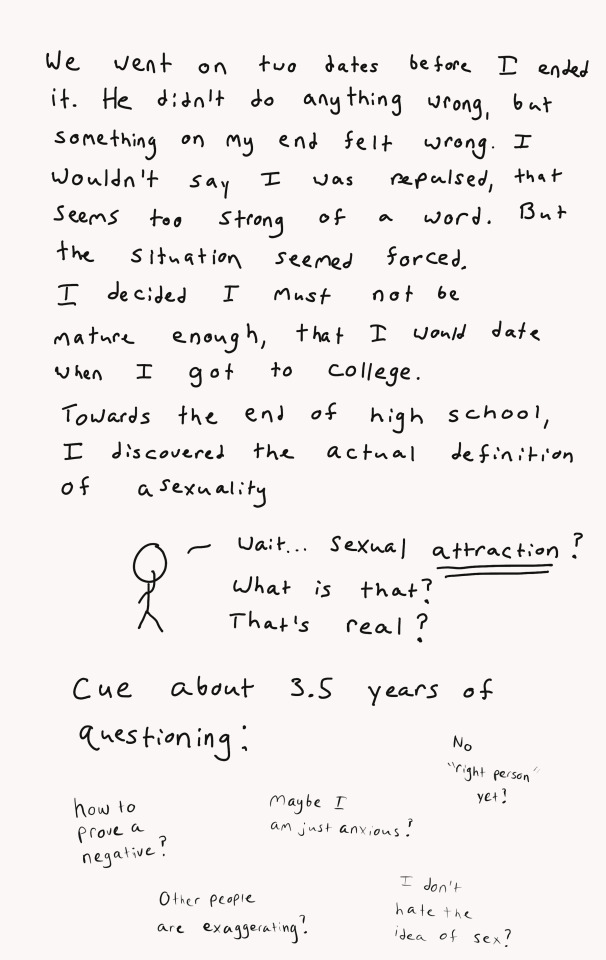 We went on two dates before I ended
it. He didn't do anything wrong, but
something on my end felt wrong. I
wouldn't say I was repulsed, that
seems too strong of a word. But
the situation seemed forced.
I decided I must not be
mature enough, that I would date
when I got to college.
Towards the end of high school,
I discovered the actual definition
of asexuality
Wait... Sexual attraction?
What is that?
That's real?
Cue about 3.5 years of
questioning:
No
"right person"
yet?
how to
prove a
negative?
Maybe I
am just anxious?
Other people
are exaggerating?
I don't
hate the
idea of sex?